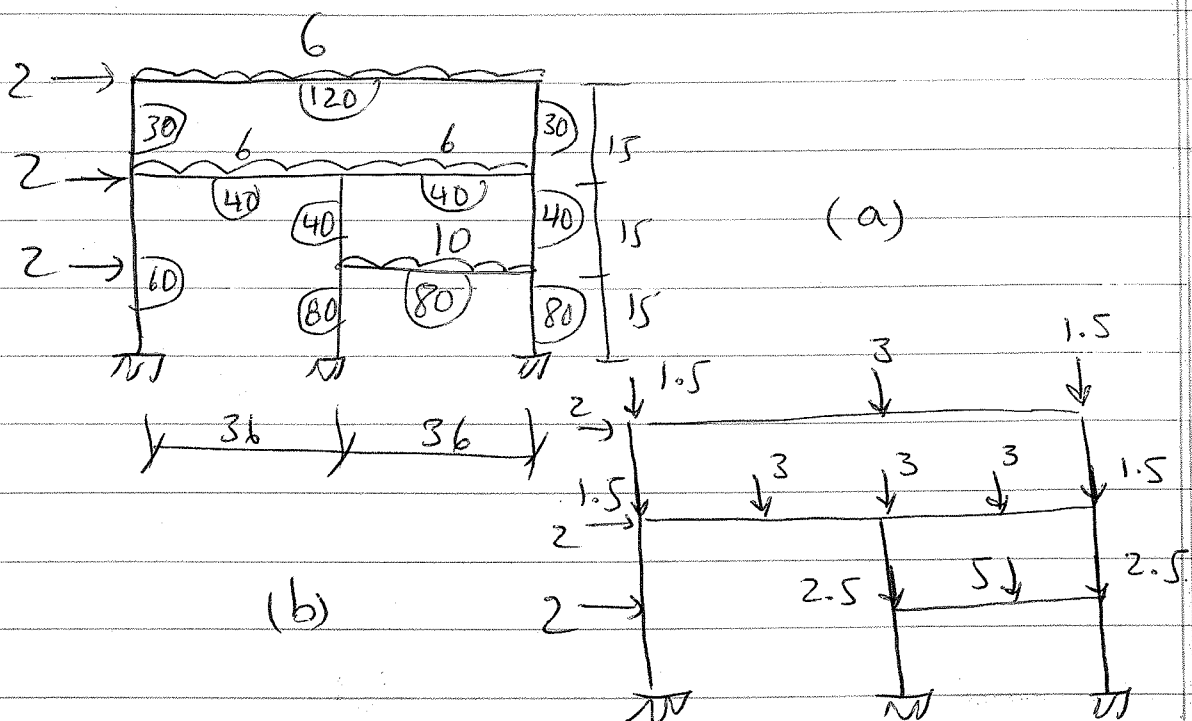 6
2
120
30
30
6
6
15
2
40
40
40
40
15
(a)
10
2
60
80
80
80
15
36
36
1.5
3
1.5
2
3
3
3
1.5
1.5
2
2.5
5
2.5
2
(b)